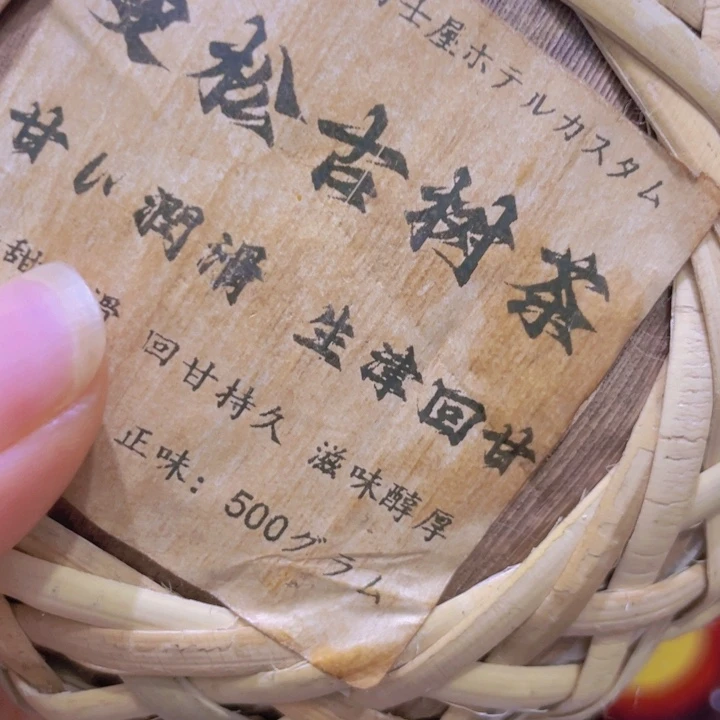 士屋ホテルカスタム
松古樹茶
甘い潤滑 生津回甘
甜 滑 回甘持久 滋味醇厚
正味: 500グラム